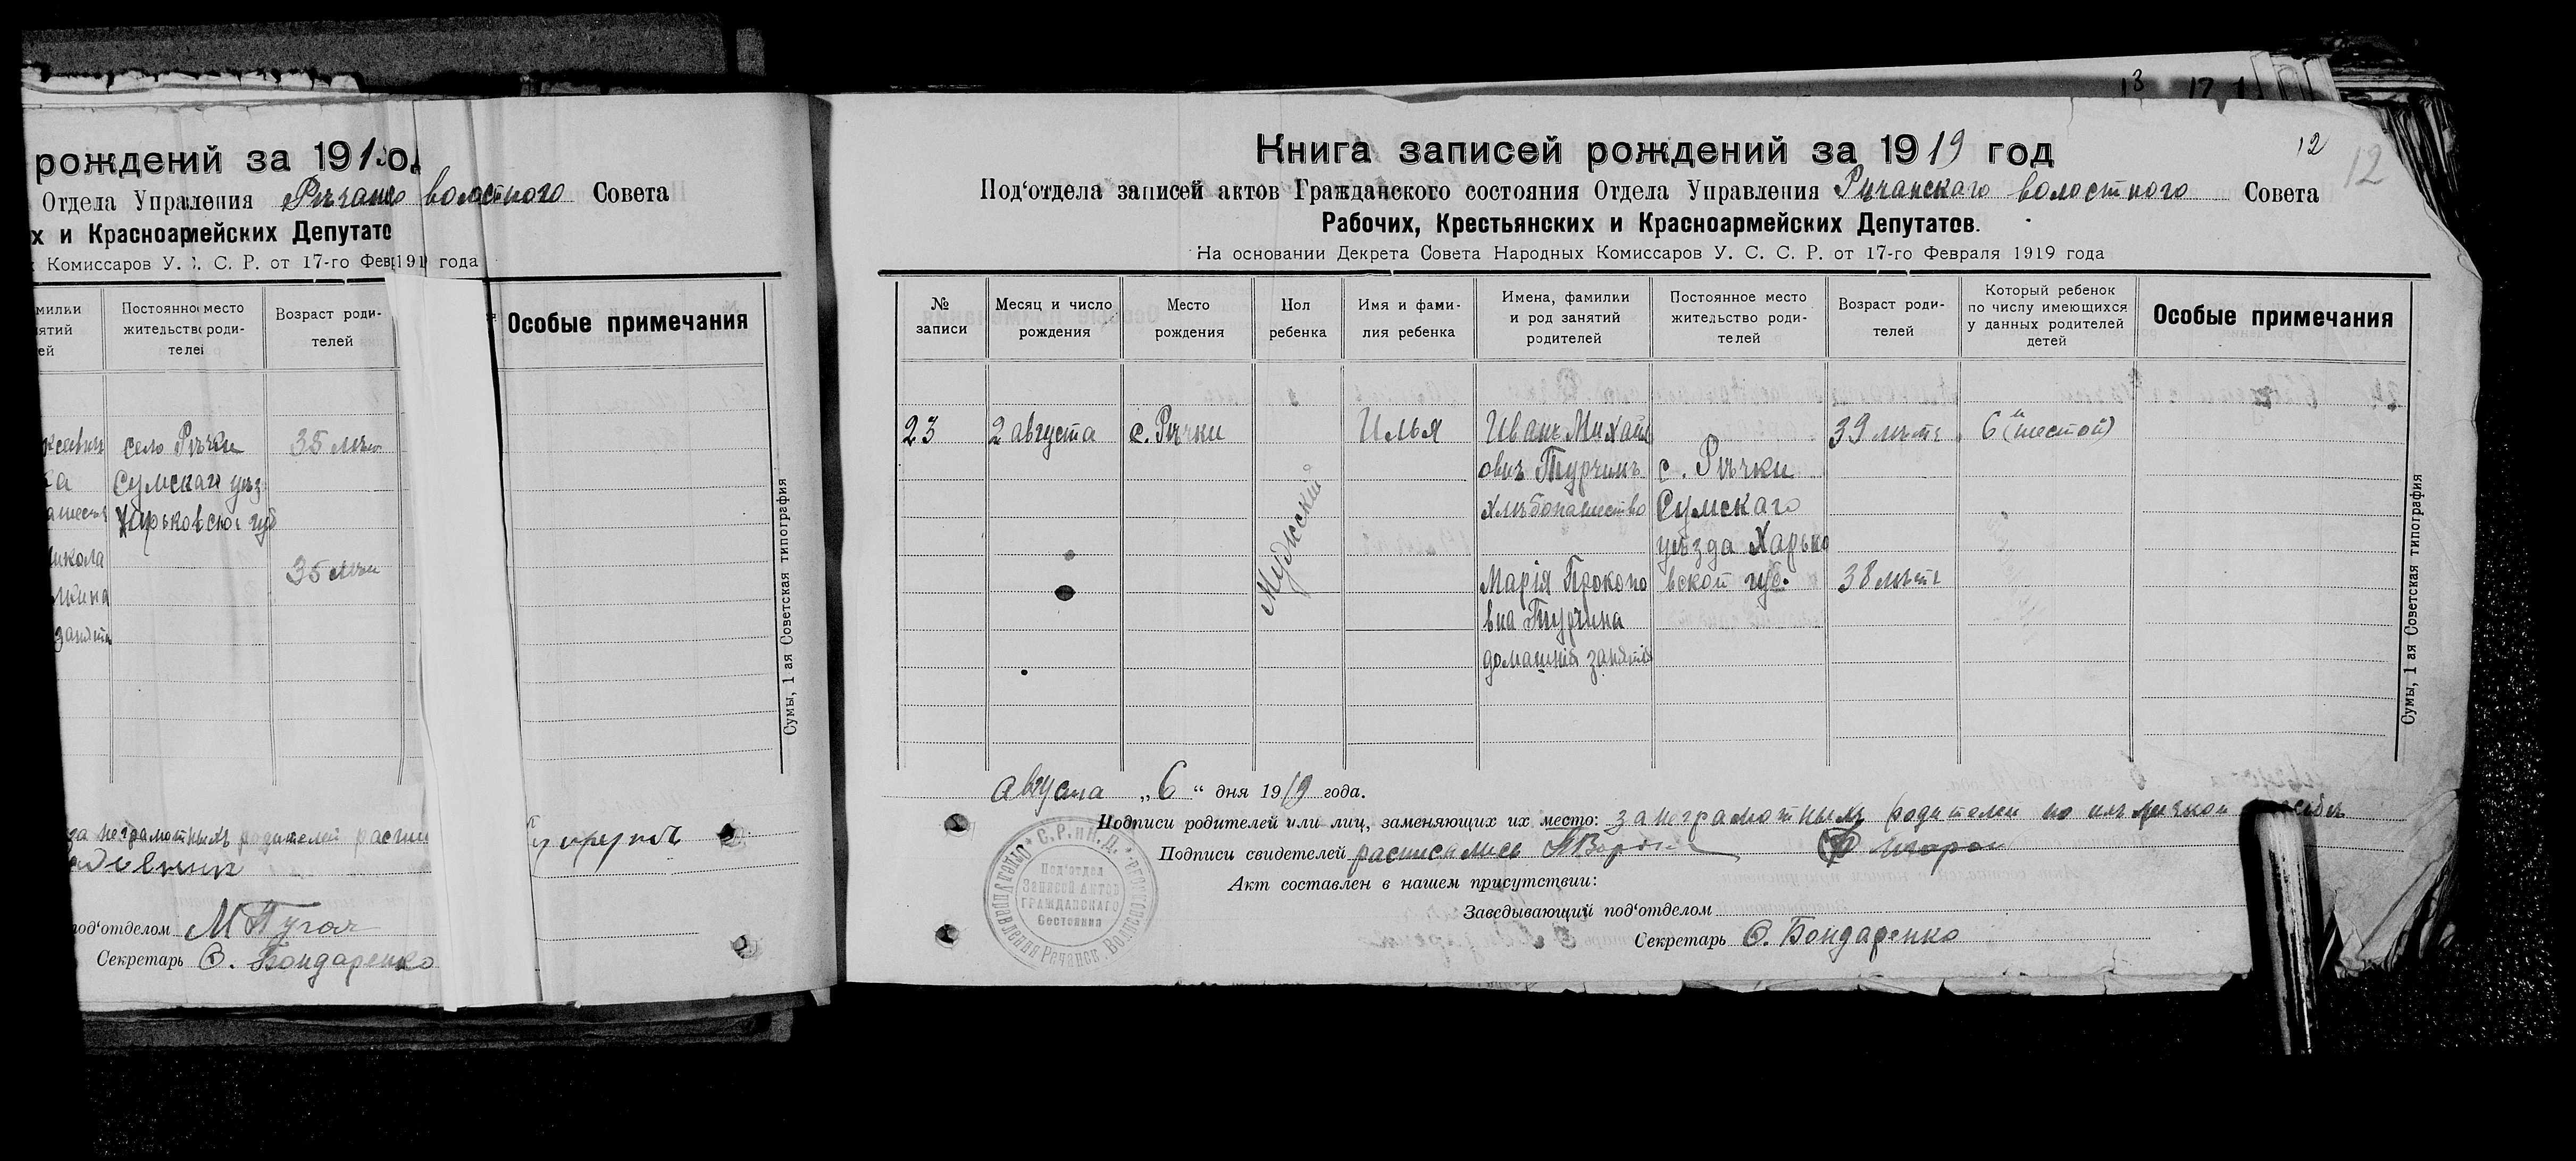 рождений за 191
Отдела Управления Рѣчанс волостного Совета
х и Красноармейских Депутато
Комиссаров У. С. С. Р. от 17-го Фев 191 года
милки
ятий
ей
Постоянно место
жительство роди-
телей
Возраст роди-
телей
Особые примечания
село Рѣчки
35 лѣт
ка
Сумскаго уѣз
Харьковской губ
икола
35 лѣт
занятія
Сумы, 1 ая Советская типография
за неграмотныхъ родителей распи
под'отделом М Пугач
Секретарь О. Бондаренко
13 12
Книга записей рождений за 1919 год
12
12
Под'отдела записей актов Гражданского состояния Отдела Управления Рѣчанскаго волостного Совета
Рабочих, Крестьянских и Красноармейских Депутатов.
На основании Декрета Совета Народных Комиссаров У. С. С. Р. от 17-го Февраля 1919 года
№
записи
Месяц и число
рождения
Место
рождения
Пол
ребенка
Имя и фами-
лия ребенка
Имена, фамилки
и род занятий
родителей
Постоянное место
жительство роди-
телей
Возраст роди-
телей
Который ребенок
по числу имеющихся
у данных родителей
детей
Особые примечания
23
2 августа
с. Рѣчки
Мужский
Илья
Иванъ Михайл
овичъ Турчинъ
хлѣбопашество
Марія Прокопо
вна Турчина
домашнія занятія
с. Рѣчки
Сумскаго
уѣзда Харько
вской губ.
39 лѣтъ
38 лѣтъ
6й (шестой)
Сумы, 1 ая Советская типография
августа „6“ дня 1919 года.
Подписи родителей или лиц, заменяющих их место: за неграмотныхъ родителей по ихъ личной просьбѣ
Подписи свидетелей расписались
Акт составлен в нашем присутствии:
Заведывающий под'отделом
Секретарь О. Бондаренко
С.Р. и К.Д.
Отдел Управления Речанск. Волостного
Под'отдел
Записей Актов
ГРАЖДАНСКАГО
Состояния